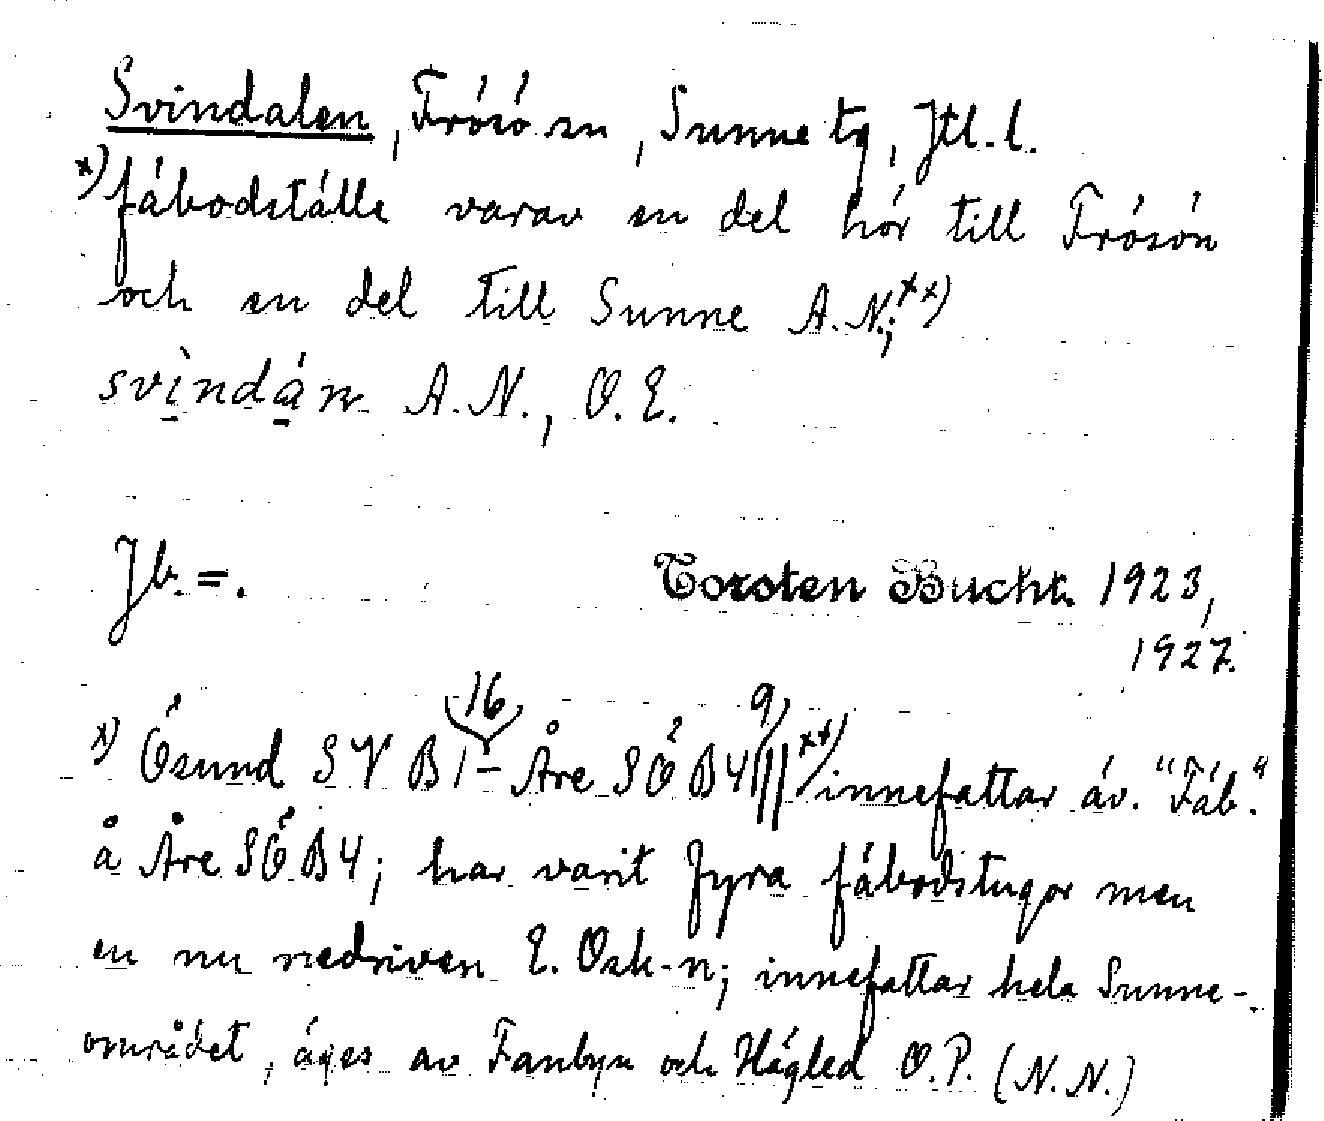 Svindalen, Frösö sn, Sunne tg, Jtl. l.
x) fäbodställe varav en del hör till Frösön
och en del till Sunne A.N.; xx)
svìndán A.N., O.E.
Jb. =. Torsten Bucht 1923,
1927.
16 9
x) Ösund SV B1 - Åre SÖ B4 xx) innefattar äv. "Fäb."
å Åre SÖ B4; har varit fyra fäbodstugor men
en nu nedriven E. Osk-n; innefattar hela Sunne-
området, äges av Fanbyn och Hägled O.P. (N.N.)